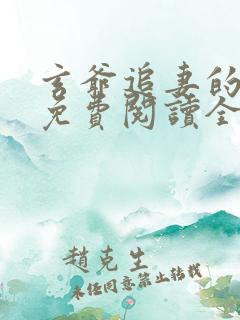 玄爺追妻的
免費閱讀全
趙克生
未經同意禁止轉載